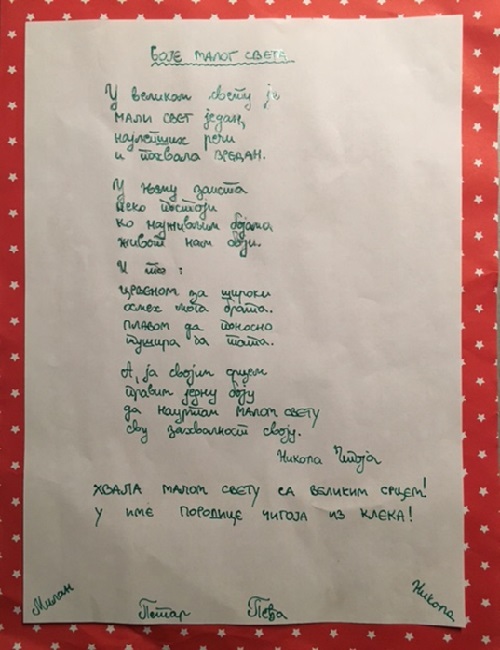 БОЈЕ МАЛОГ СВЕТА
У великом свету је
МАЛИ СВЕТ један,
најлепших речи
и похвала ВРЕДАН.
У њему заиста
неко постоји
ко најживљим бојама
живот нам боји.
И то :
ЦРВЕНОМ за широки
осмех мога брата.
ПЛАВОМ да поносно
пушира за тата.
А, ја својим срцем
правим једну боју
да нацртам МАЛОМ СВЕТУ
сву захвалност своју.
Никола Читоја
ХВАЛА МАЛОМ СВЕТУ СА ВЕЛИКИМ СРЦЕМ!
У ИМЕ ПОРОДИЦЕ ЧИГОЈА ИЗ КЛЕКА!
Милан
Петар
Пеђа
Никола